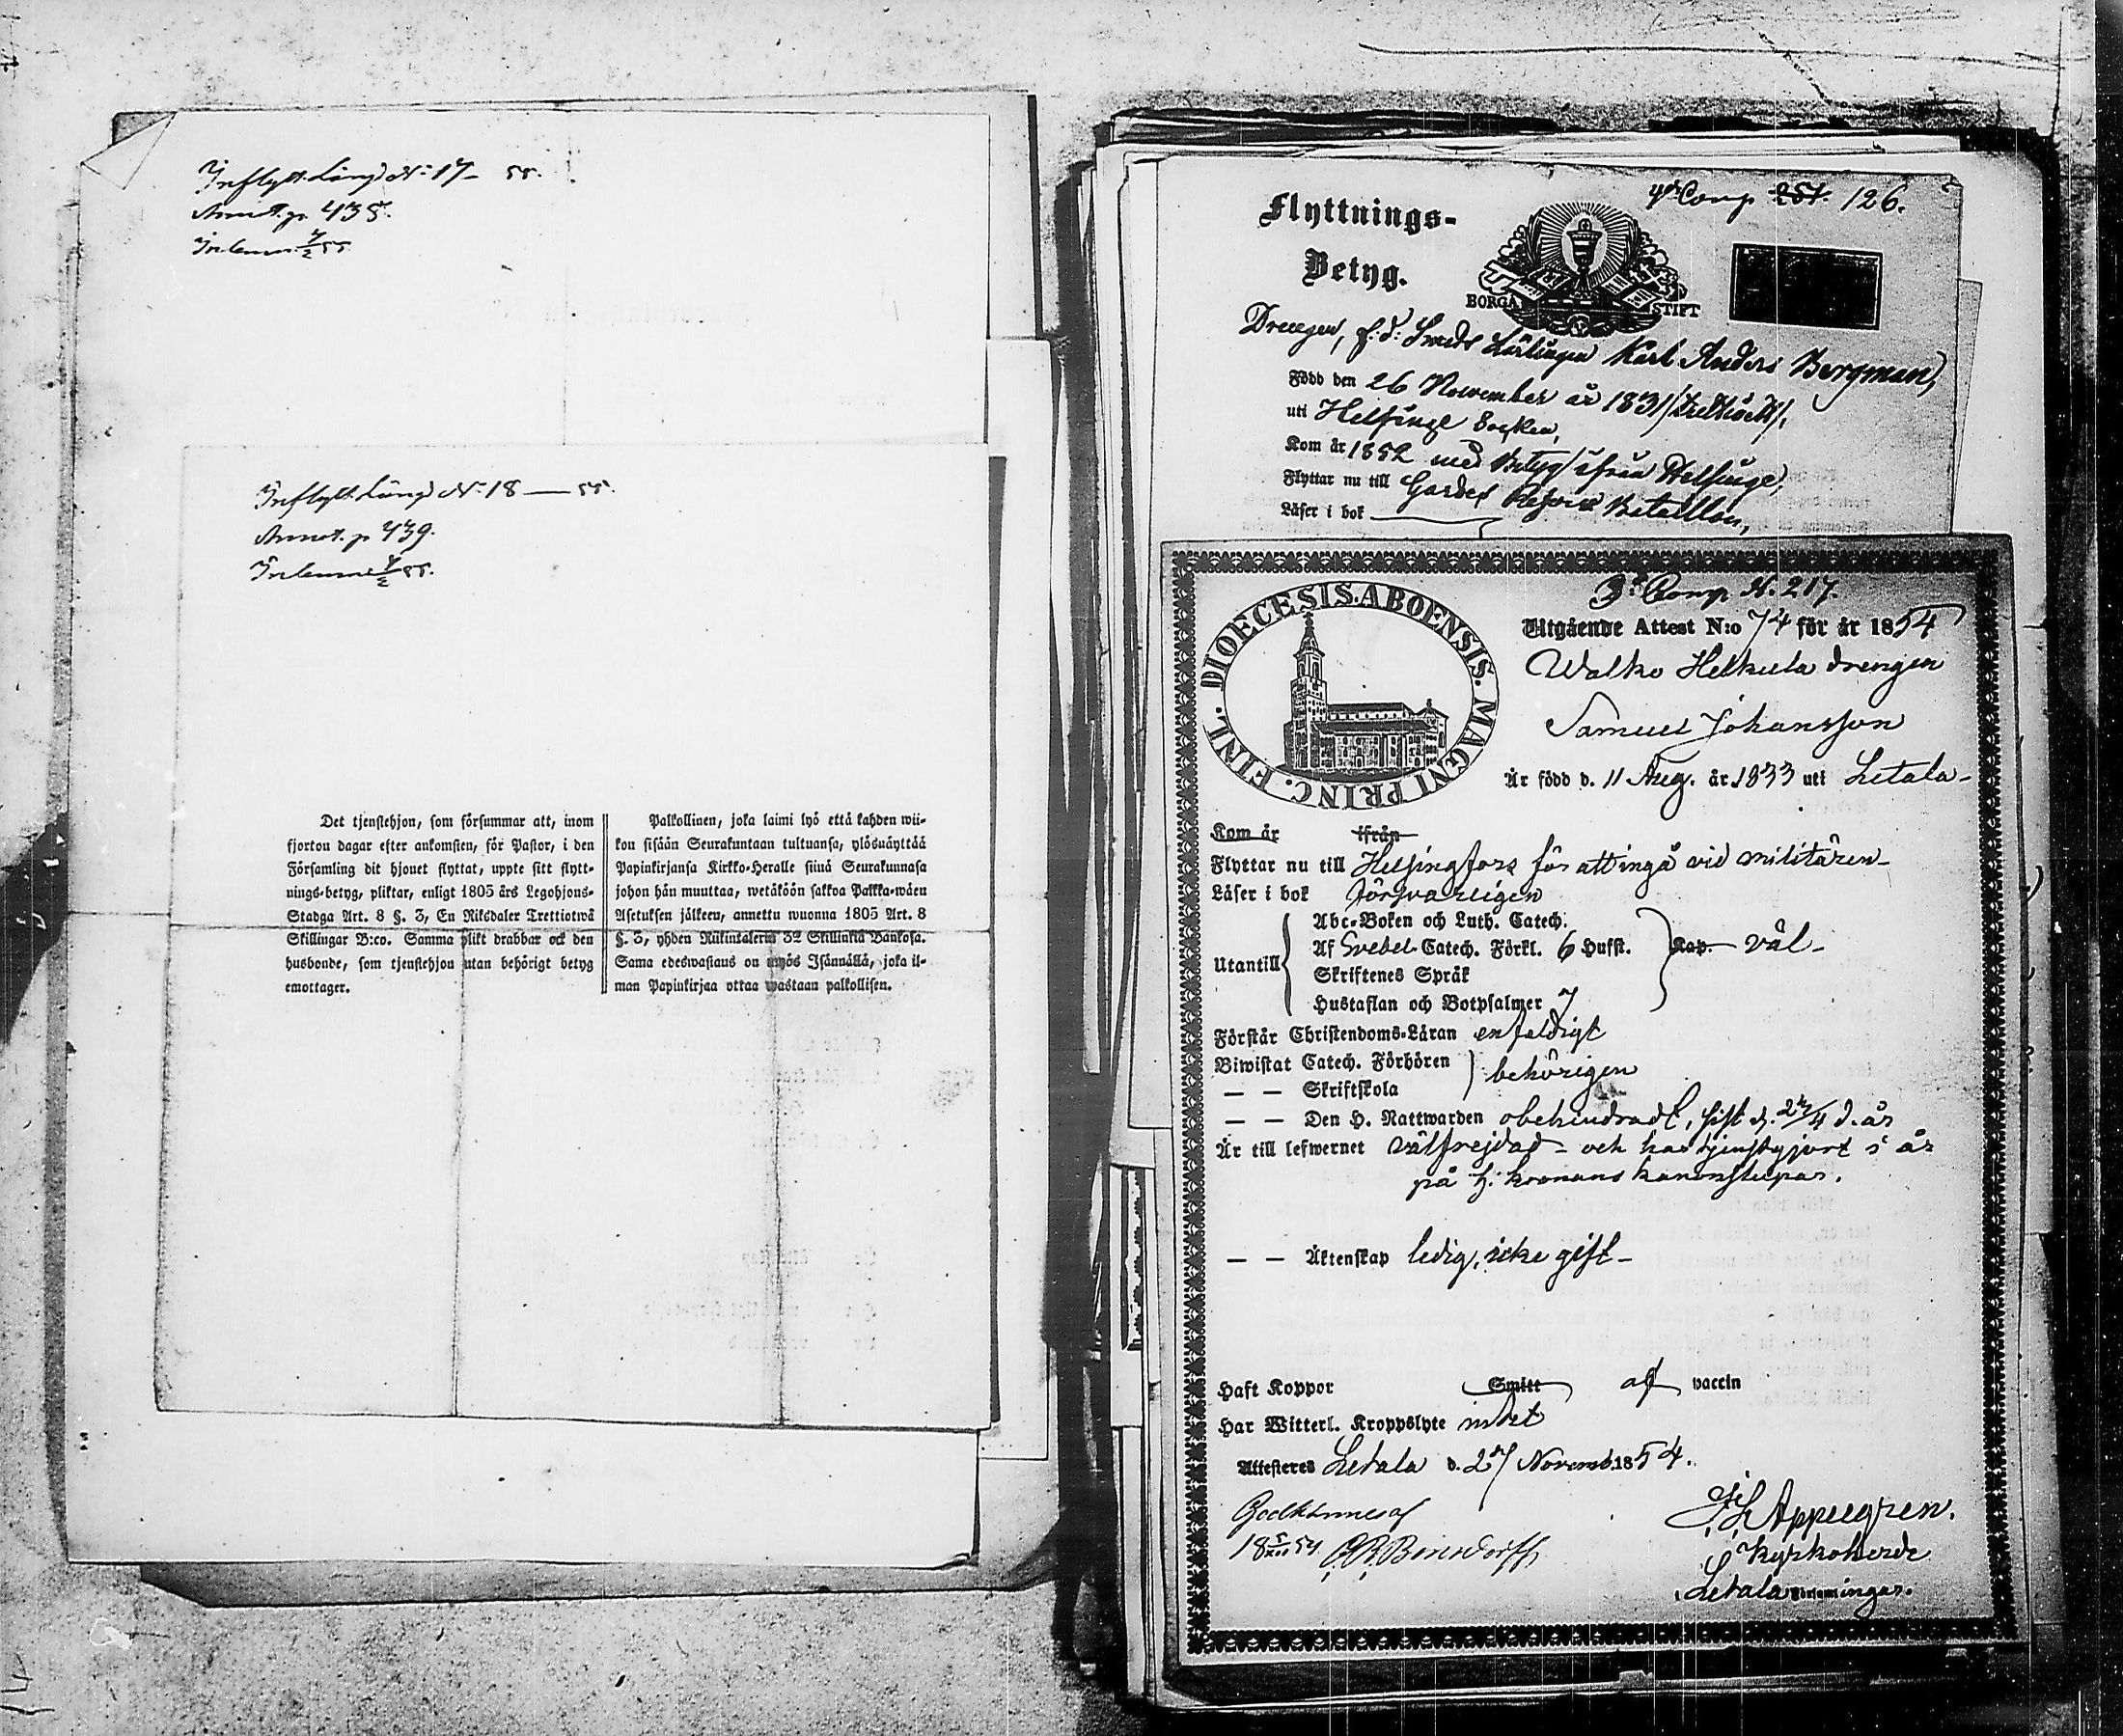 Inflytt. Längd N:o 17 — 55.
Annot. p. 435.
Inlemn. 4/2 55.
Inflytt. Längd N:o 18 — 55.
Annot. p. 439.
Inlemn. 4/2 55.
Det tjenstehjon, som försummar att, inom
fjorton dagar efter ankomsten, för Pastor, i den
Församling dit hjonet flyttat, uppte sitt flytt-
nings-betyg, pliktar, enligt 1805 års Legohjons-
Stadga Art. 8 §. 3, En Riksdaler Trettiotwå
Skillingar B:co. Samma plikt drabbar ock den
husbonde, som tjenstehjon utan behörigt betyg
emottager.
Palkollinen, joka laimi lyö että kahden wii-
kon sisään Seurakuntaan tultuansa, ylösnäyttää
Papinkirjansa Kirkko-Heralle siinä Seurakunnasa
johon hän muuttaa, wetäköön sakkoa Palkka-wäen
Asetuksen jälkeen, annettu wuonna 1805 Art. 8
§. 3, yhden Riikintalerin 32 Skillinkiä Bankosa.
Sama edeswastaus on myös Isännällä, joka il-
man Papinkirjaa ottaa wastaan palkollisen.
4de Comp 251. 126.
Flyttnings-
Betyg.
BORGÅ STIFT
Drengen, f. d. Smeds Lärlingen Karl Anders Bergman,
Född den 26 November år 1831
uti Helsinge Socken,
Kom år 1852 med Betyg ifrån Helsinge,
Flyttar nu till Gardes Reserve Bataillon,
Läser i bok
DIOECESIS. ABOENSIS. MAGNI PRINC. FINL.
3e Comp N. 217.
Utgående Attest N:o 74 för år 1854
Walko Helkula drengen
Samuel Johansson
Är född d. 11 Aug. år 1833 uti Letala
Kom år ifrån
Flyttar nu till Helsingfors för att ingå vid militären
Läser i bok försvarligen
Utantill
Abc-Boken och Luth. Catech.
Af Svebel. Catech. Förkl. 6 Hufst.
Skriftenes Språk
Hustaflan och Botpsalmer 7
Kap. väl
Förstår Christendoms-Läran enfaldigt
Biwistat Catech. Förhören
— — Skriftskola
behörigen
— — Den H. Nattwarden obehindradt, sist d. 24/4 d. år
Är till lefwernet välfrejdad - och har tjenstgjort i år
på h. kronans kanonslupar.
— — Äktenskap ledig, icke gift
Haft Koppor Smitt af vaccin
Har Witterl. Kroppslyte intet
Attesteras Letala d. 27 Novemb. 1854.
Godkännes af
18 5/XII 54
Appelgren.
Kyrkoherde
Letala Församlingar.